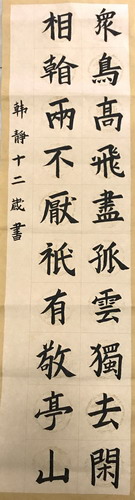 眾鳥高飛盡孤雲獨去閑
相翰兩不厭祇有敬亭山
韩静十二歲書